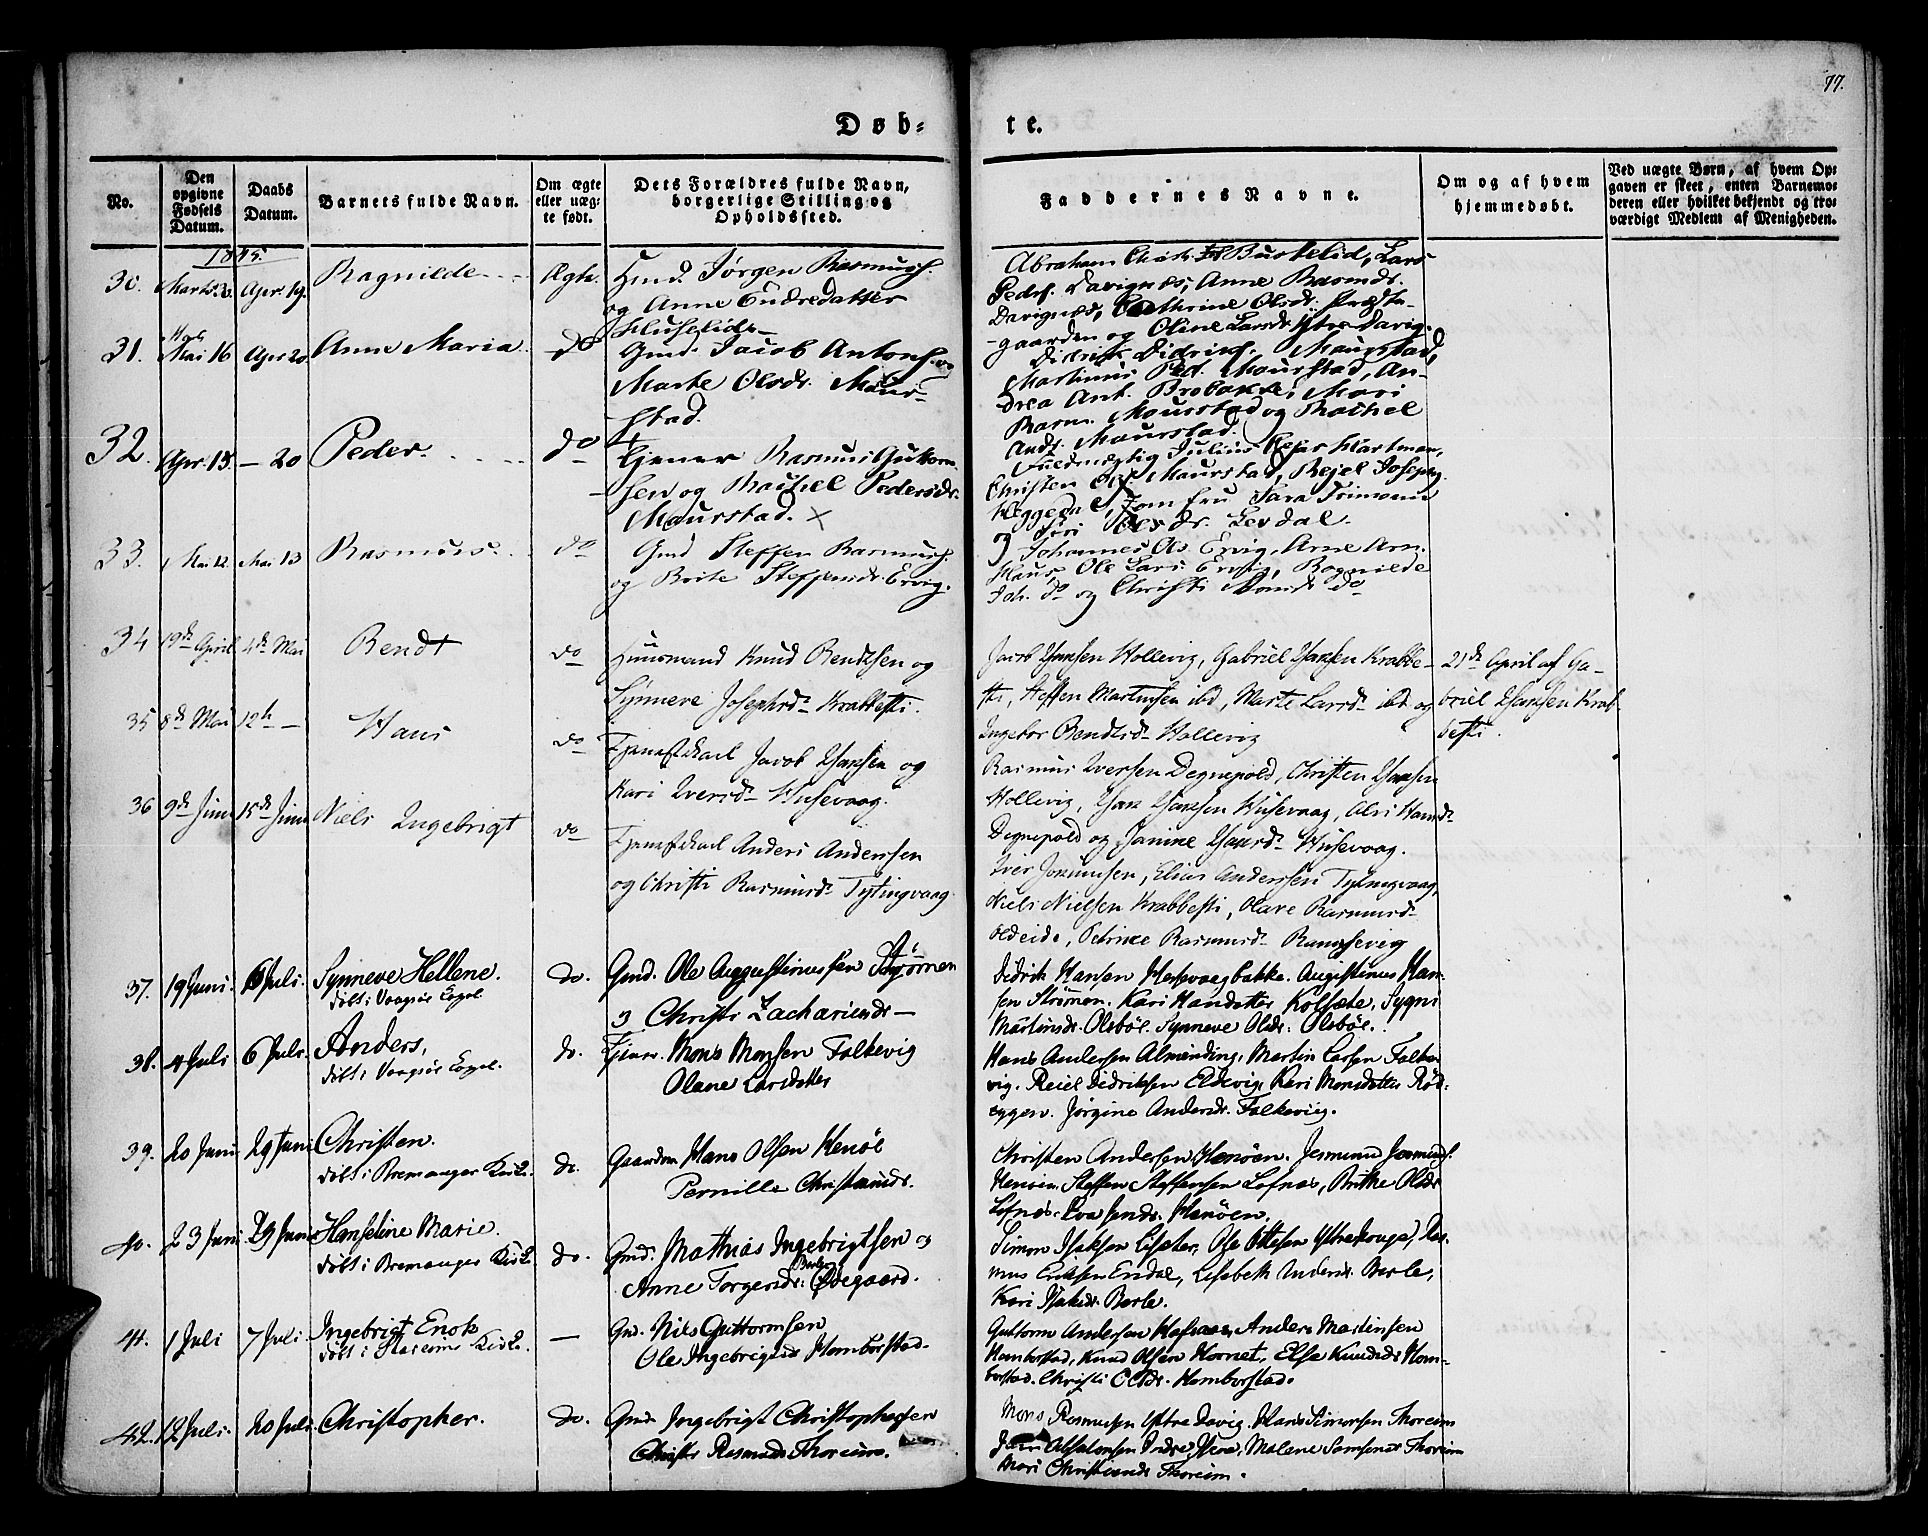 77.
Døb-
te.
No.
Den opgivne Fødsels Datum.
Daabs Datum.
Barnets fulde Navn.
Om ægte eller uægte født.
Dets Forældres fulde Navn, borgerlige Stilling og Opholdssted.
Faddernes Navne.
Om og af hvem hjemmedøbt.
Ved uægte Børn, af hvem Opgaven er skeet, enten Barnemoderen eller hvilket bekjendt og troværdigt Medlem af Menigheden.
1845.
30. Marts Apr. 19. Ragnilde Ægte. Hmd. Jørgen Rasmuss.
og Anne Endredatter
Huselide
Abraham Buskelid, Lars
Peders. Davignes, Anne Rasmd.
Davignes, Cathrine Olsdr.
gaarden og Oline Larsdr. Ytre Davig.
31. Mai 16 Apr. 20 Anne Maria do Gmd. Jacob Antons. og
Marte Olsdr. Maur-
stad.
Didrik Didriks. Maurstad,
Martinus Ped. Maurstad, An-
drea Ant. Brobakke, Mari
Rasm. Maurstad og Rachel
Andr. Maurstad.
32. Apr. 13. — 20 Peder. do Tjener Rasmus Guttorm-
sen og Rachel Pedersdr.
Maurstad. ×
Fuldmægtig Julius Hartman,
Christen Ols. Maurstad, Rejel Joseps.
Jomfru Sara
og Siri Olsdr. Levdal.
33. Mai 12 Mai 13 Rasmus do Gmd Steffen Rasmuss.
og Brite Steffensdr. Ervig.
Johannes Ols. Ervig, Arne Arn.
Ole Lars. Ervig, Ragnilde
Joh. do og Christi do
34 19de April 4de Mai Bendt do Huusmand Knud Bendtsen og
Synneve Josephsd. Krabbesti.
Jacob Hansen Hollevig, Gabriel Hansen Krabbe-
sti, Steffen Martinsen ibd, Marte Larsd. ibd. og
Ingebor Bendtsd. Hollevig
21de April af Ga-
briel Hansen Krab-
besti.
35 8de Mai 12te — Hans do Tjenestekarl Jacob Hansen og
Kari Iversd. Husevaag.
Rasmus Iversen Degnepold, Christen Hansen
Hollevig, Hans Hansen Husevaag, Hansd.
Degnepold og Janine Hansd. Husevaag.
36 9de Juni 15de Juni Niels Ingebrigt do Tjenestekarl Anders Anderssen
og Christi Rasmusd. Tytingvaag
Iver Jonunsen, Elias Anderssen Tytingvaag,
Niels Nielsen Krabbesti, Olave Rasmusd.
Oldeide, Petrine Rasmusd. Ramsevig
37. 19 Juni. 6 Juli. Synneve Hellene.
døbt i Vaagsøe Capel.
do. Gmd. Ole Augustinussen Strømen
og Christi Zachariasdr —
Didrik Hansen Hessevaagbakke. Augustinus Han-
sen Strømen. Kari Hansdatter Kolsæte, Sygni
Martinsdr. Olsbøl. Synneve Olsdr. Olsbøl.
38. 4 Juli 6 Juli. Anders,
døbt i Vaagsøe Capel.
do. Tjener. Mons Monsen Falkevig
Olane Larsdatter
Hans Andersen Almending, Martin Larsen Falke-
vig. Reiel Didriksen Eldevig, Kari Monsdatter Rød-
eggen. Jørgine Andersdr. Falkevig.
39. 20 Juni 29 Juni Christen.
døbt i Bremanger Kirke.
do. Gaardm. Hans Olsen Henøe
Pernille Christensdr.
Christen Andersen Henøen. Jermund Jermunds.
Henøen Steffen Steffensen Lofnes, Brithe Olsdr
Lofnes. Henøen.
40. 23 Juni 29 Juni Hanseline Marie.
døbt i Bremanger Kirke
do. Gmd. Mathias Ingebrigtsen og
Anne Torgersdr. Berle Ødegaard.
Simon Isaksen Ole Ottesen Ras-
mus Eriksen Endal, Lisabeth Andersdr. Berle,
Kari Berle.
41. 1 Juli 7 Juli. Ingebrigt Enok
døbt i Kirke.
— Gmd. Nils Guttormsen
Ole Ingebrigtsdr Homborstad.
Guttorm Andersen Anders Martinsen
Homborstad, Knud Olsen Hornet, Else Knudsdr Hom-
borstad. Christi Olsdr. Homborstad.
42. 12 Juli. 20 Juli. Christopher. do. Gmd. Ingebrigt Christophersen
Christi Rasmusdr Thoreim.
Mons Rasmussen Ytre Davig. Hans Simonsen Thoreim
Absalonsen Indre Malene Samsonsdr Thoreim
Mari Christiansdr Thoreim.